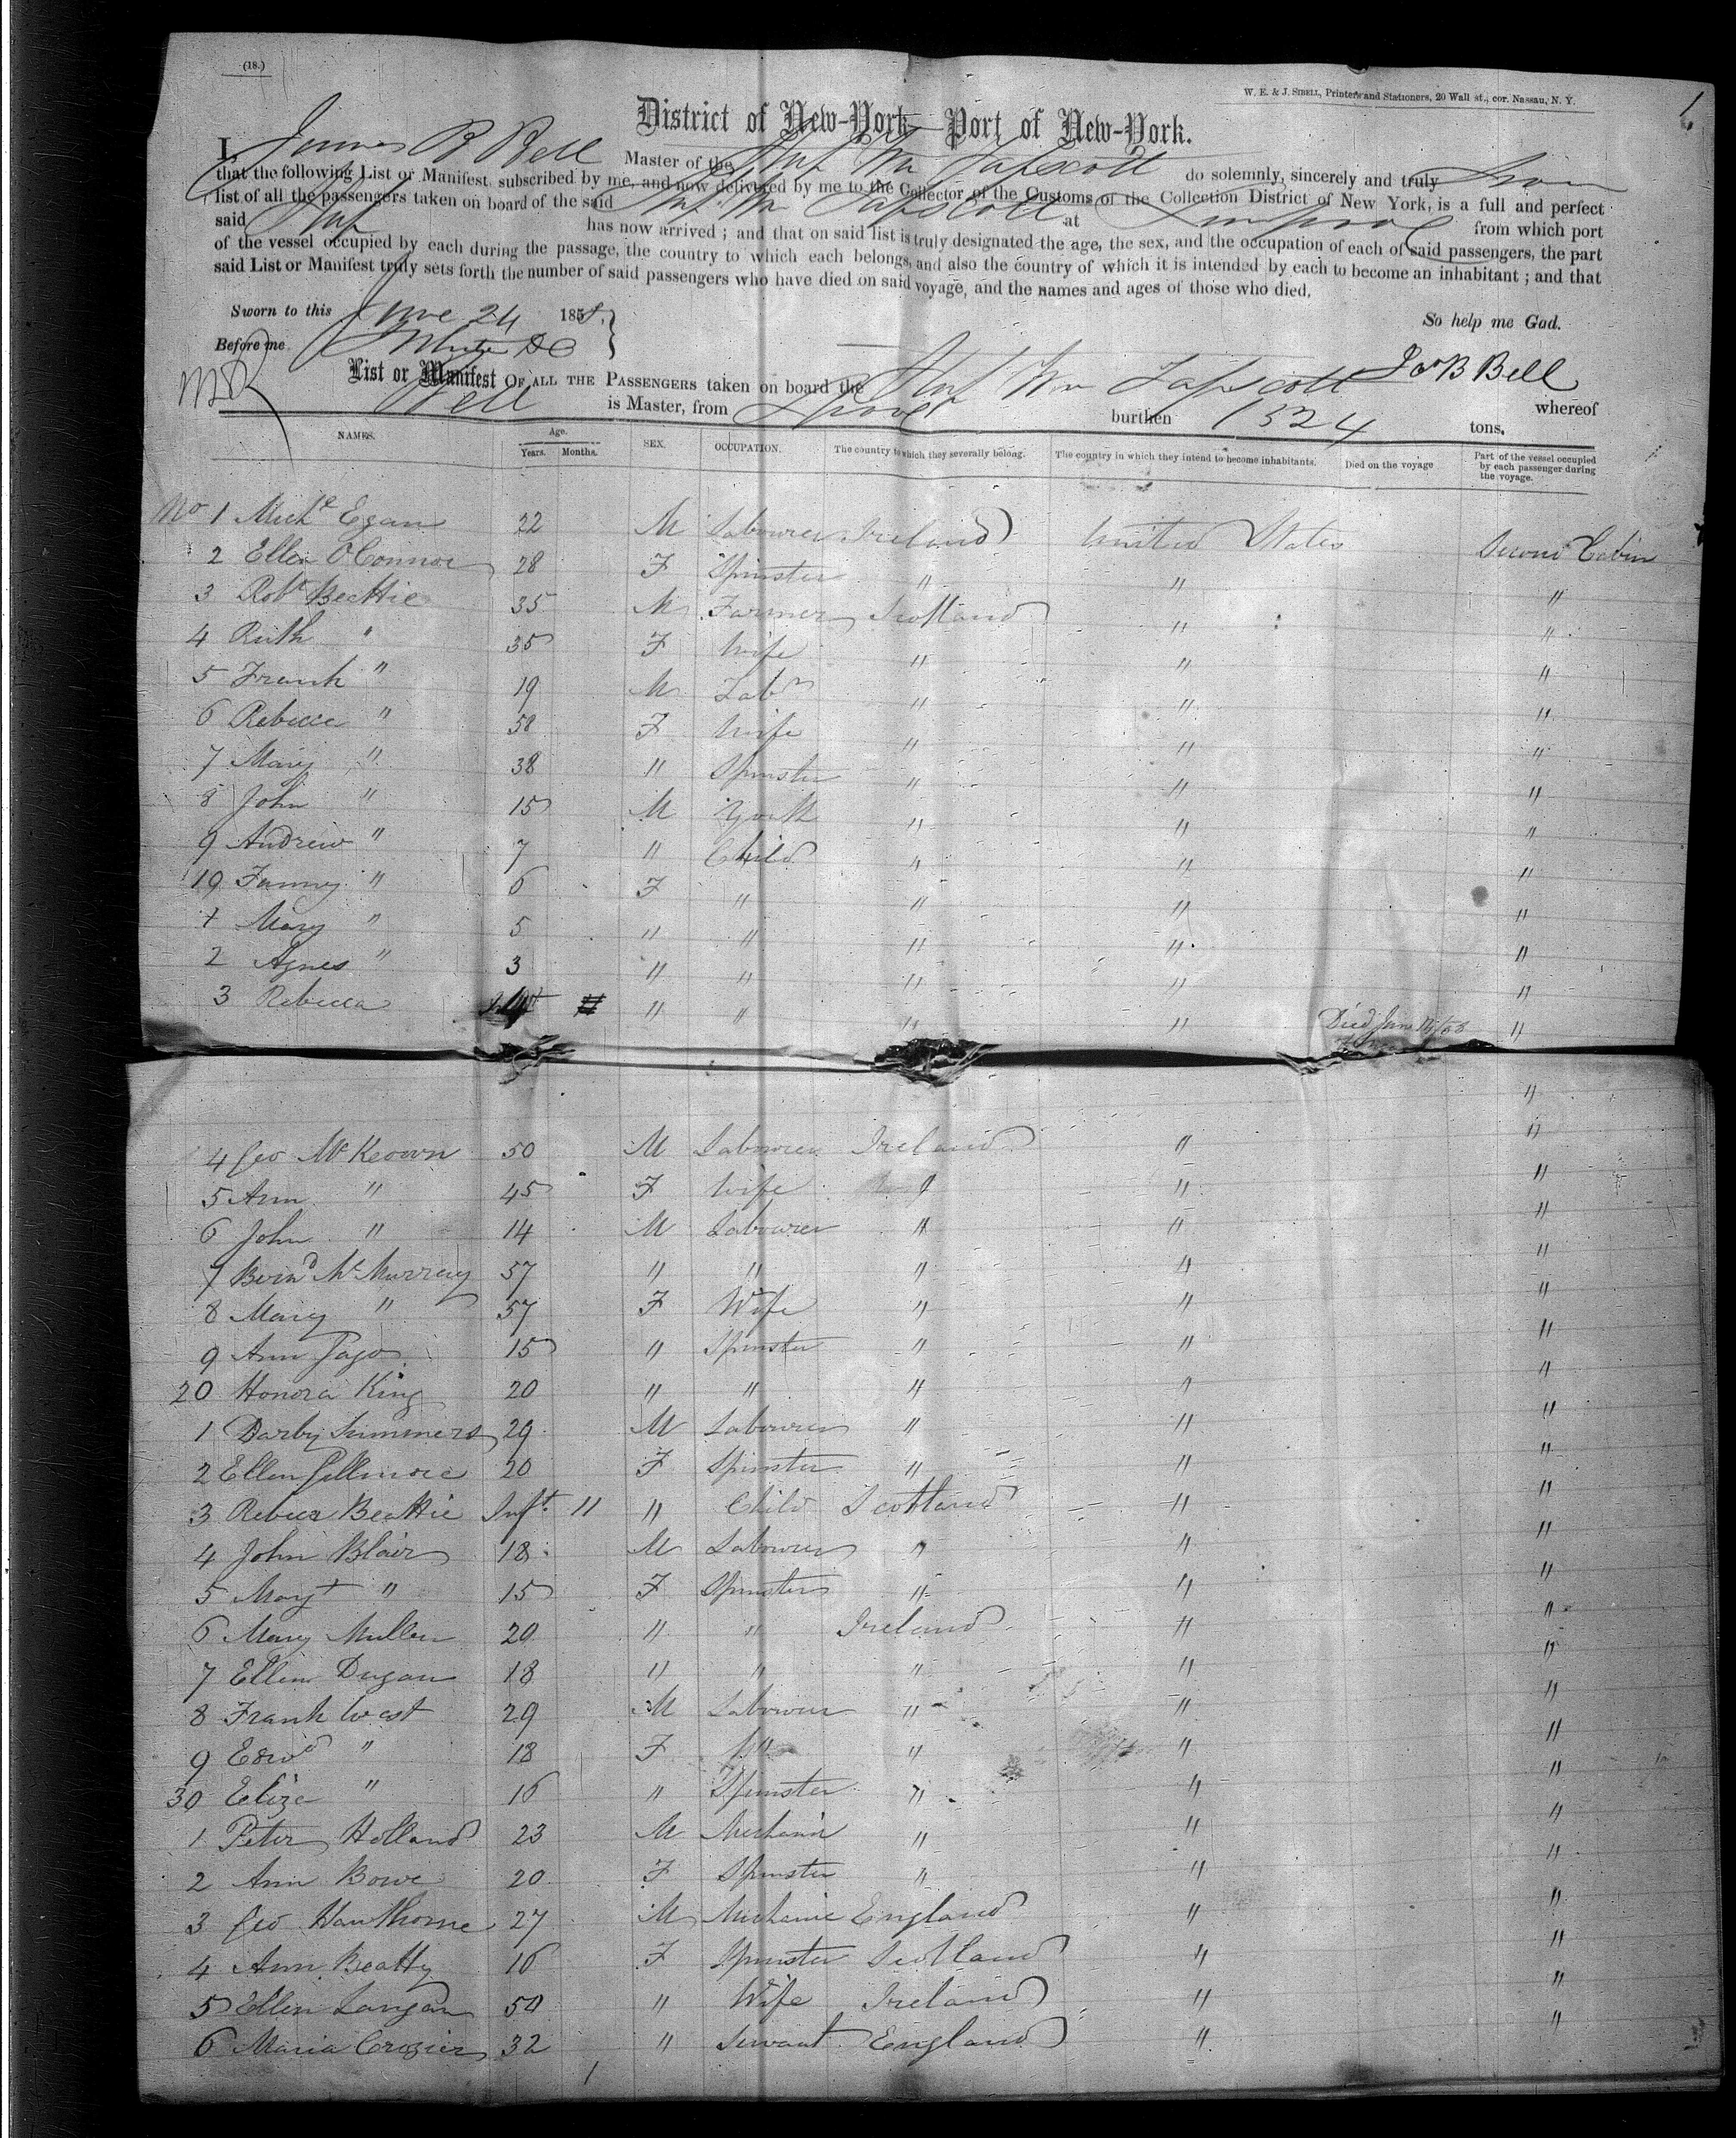 (18.)
W. E. & J. SIBELL, Printers and Stationers, 20 Wall st., cor. Nassau, N. Y.
1
District of New-York—Port of New-York.
I, James B Bell Master of the Ship Wm Tapscott do solemnly, sincerely and truly
that the following List or Manifest, subscribed by me, and now delivered by me to the Collector of the Customs of the Collection District of New York, is a full and perfect
list of all the passengers taken on board of the said Ship Wm Tapscott at from which port
said Ship has now arrived; and that on said list is truly designated the age, the sex, and the occupation of each of said passengers, the part
of the vessel occupied by each during the passage, the country to which each belongs, and also the country of which it is intended by each to become an inhabitant; and that
said List or Manifest truly sets forth the number of said passengers who have died on said voyage, and the names and ages of those who died.
Sworn to this June 24 1858. So help me God.
Before me
Jas B Bell
List or Manifest OF ALL THE PASSENGERS taken on board the Ship Wm Tapscott whereof
Bell is Master, from Lpool burthen 1324 tons.
NAMES. Age. Years. Months. SEX. OCCUPATION. The country to which they severally belong. The country in which they intend to become inhabitants. Died on the voyage Part of the vessel occupied by each passenger during the voyage.
No 1 Michl Egan 22 M Labourer Ireland United States Second Cabin
2 Ellen O'Connor 28 F Spinster " " "
3 Robt Beattie 35 M Farmer Scotland " "
4 Ruth " 35 F Wife " " "
5 Frank " 19 M Labr " " "
6 Rebecca " 58 F Wife " " "
7 Mary " 38 " Spinster " " "
8 John " 15 M Youth " " "
9 Andrew " 7 " Child " " "
10 Fanny " 6 F " " " "
1 Mary " 5 " " " " "
2 Agnes " 3 " " " " "
3 Rebecca " " " " Died June "
4 Geo McKeown 50 M Labourer Ireland " "
5 Ann " 45 F Wife " " "
6 John " 14 M Labourer " " "
7 Bernd McMurray 57 " " " " "
8 Mary " 57 F Wife " " "
9 Ann Jago 15 " Spinster " " "
20 Honora King 20 " " " " "
1 Darby Summers 29 M Labourer " " "
2 Ellen Gillmore 20 F Spinster " " "
3 Rebecca Beattie Inft. 11 " Child Scotland " "
4 John Blair 18 M Labourer " " "
5 Margt " 15 F Spinster " " "
6 Mary Mullen 20 " " Ireland " "
7 Ellen Dugan 18 " " " " "
8 Frank West 29 M Labourer " " "
9 Edwd " 18 F " " " "
30 Eliza " 16 " Spinster " " "
1 Peter Holland 23 M Mechanic " " "
2 Ann Bowe 20 F Spinster " " "
3 Geo Hawthorne 27 M Mechanic England " "
4 Ann Beatty 16 F Spinster Scotland " "
5 Ellen Langan 50 " Wife Ireland " "
6 Maria Crozier 32 " Servant England " "
1